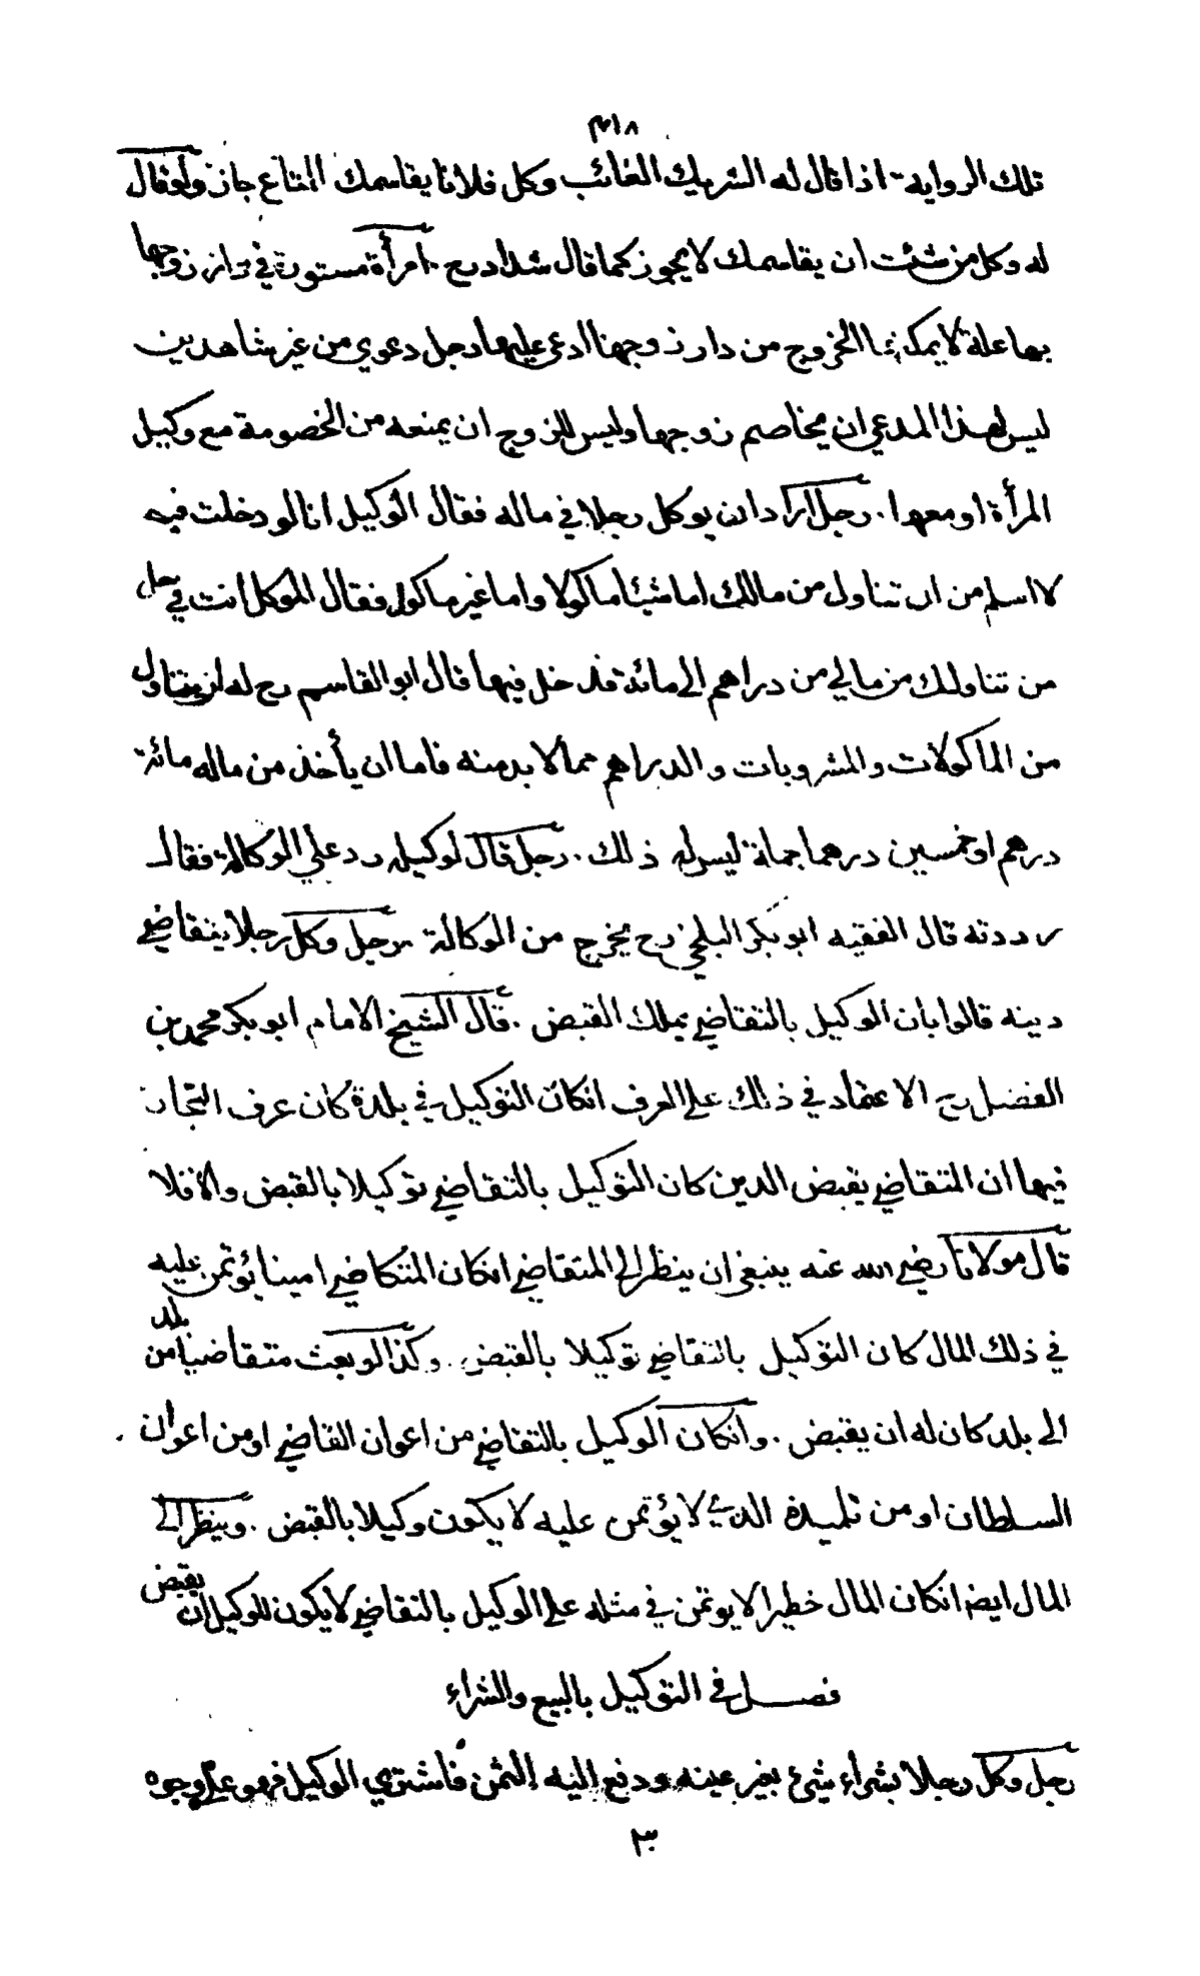 ٤١٨
تلك الرواية اذا قال له الشريك الغائب وكل فلانا يقاسمك المتاع جاز ولو قال
له وكل من شئت ان يقاسمك لا يجوز كما قال شداد رح امرأة مستورة في دار زوجها
بها علة لا يمكنها الخروج من دار زوجها ادعى عليها رجل دعوى من غير شاهدين
ليس لهذا المدعي ان يخاصم زوجها وليس للزوج ان يمنعه من الخصومة مع وكيل
المرأة او معها . رجل اراد ان يوكل رجلا في ماله فقال الوكيل انا لو دخلت فيه
لا اسلم من ان تناول من مالك اما شيئا ماكولا واما غير ماكول فقال الموكل انت في حل
من تناولك من مالي من دراهم الى مائة فدخل فيها قال ابو القاسم رح له ان يتناول
من الماكولات والمشروبات والدراهم مما لا بد منه فاما ان يأخذ من ماله مائة
درهم او خمسين درهما جملة ليس له ذلك . رجل قال لوكيله رد علي الوكالة فقال
رددته قال الفقيه ابو بكر البلخي رح يخرج من الوكالة رجل وكل رجلا يتقاضى
دينه قالوا بان الوكيل بالتقاضي يملك القبض . قال الشيخ الامام ابو بكر محمد بن
الفضل رح الاعتماد في ذلك على العرف انكان التوكيل في بلدة كان عرف التجار
فيها ان المتقاضي يقبض الدين كان التوكيل بالتقاضي توكيلا بالقبض والا فلا
قال مولانا رضي الله عنه ينبغي ان ينظر الى المتقاضي انكان المتكاضي امينا يؤتمن عليه
في ذلك المال كان التوكيل بالتقاضي توكيلا بالقبض . وكذا لو بعث متقاضيا من بلد
الى بلد كان له ان يقبض . وانكان الوكيل بالتقاضي من اعوان القاضي او من اعوان
السلطان او من تلميذه الذي لا يؤتمن عليه لا يكون وكيلا بالقبض . وينظر الى
المال ايضا انكان المال خطيرا لا يوتمن في مثله على الوكيل بالتقاضي لا يكون للوكيل ان يقبض
فصل في التوكيل بالبيع والشراء
رجل وكل رجلا بشراء شيئ بغير عينه ودفع اليه الثمن فاشترى الوكيل فهو على وجوه